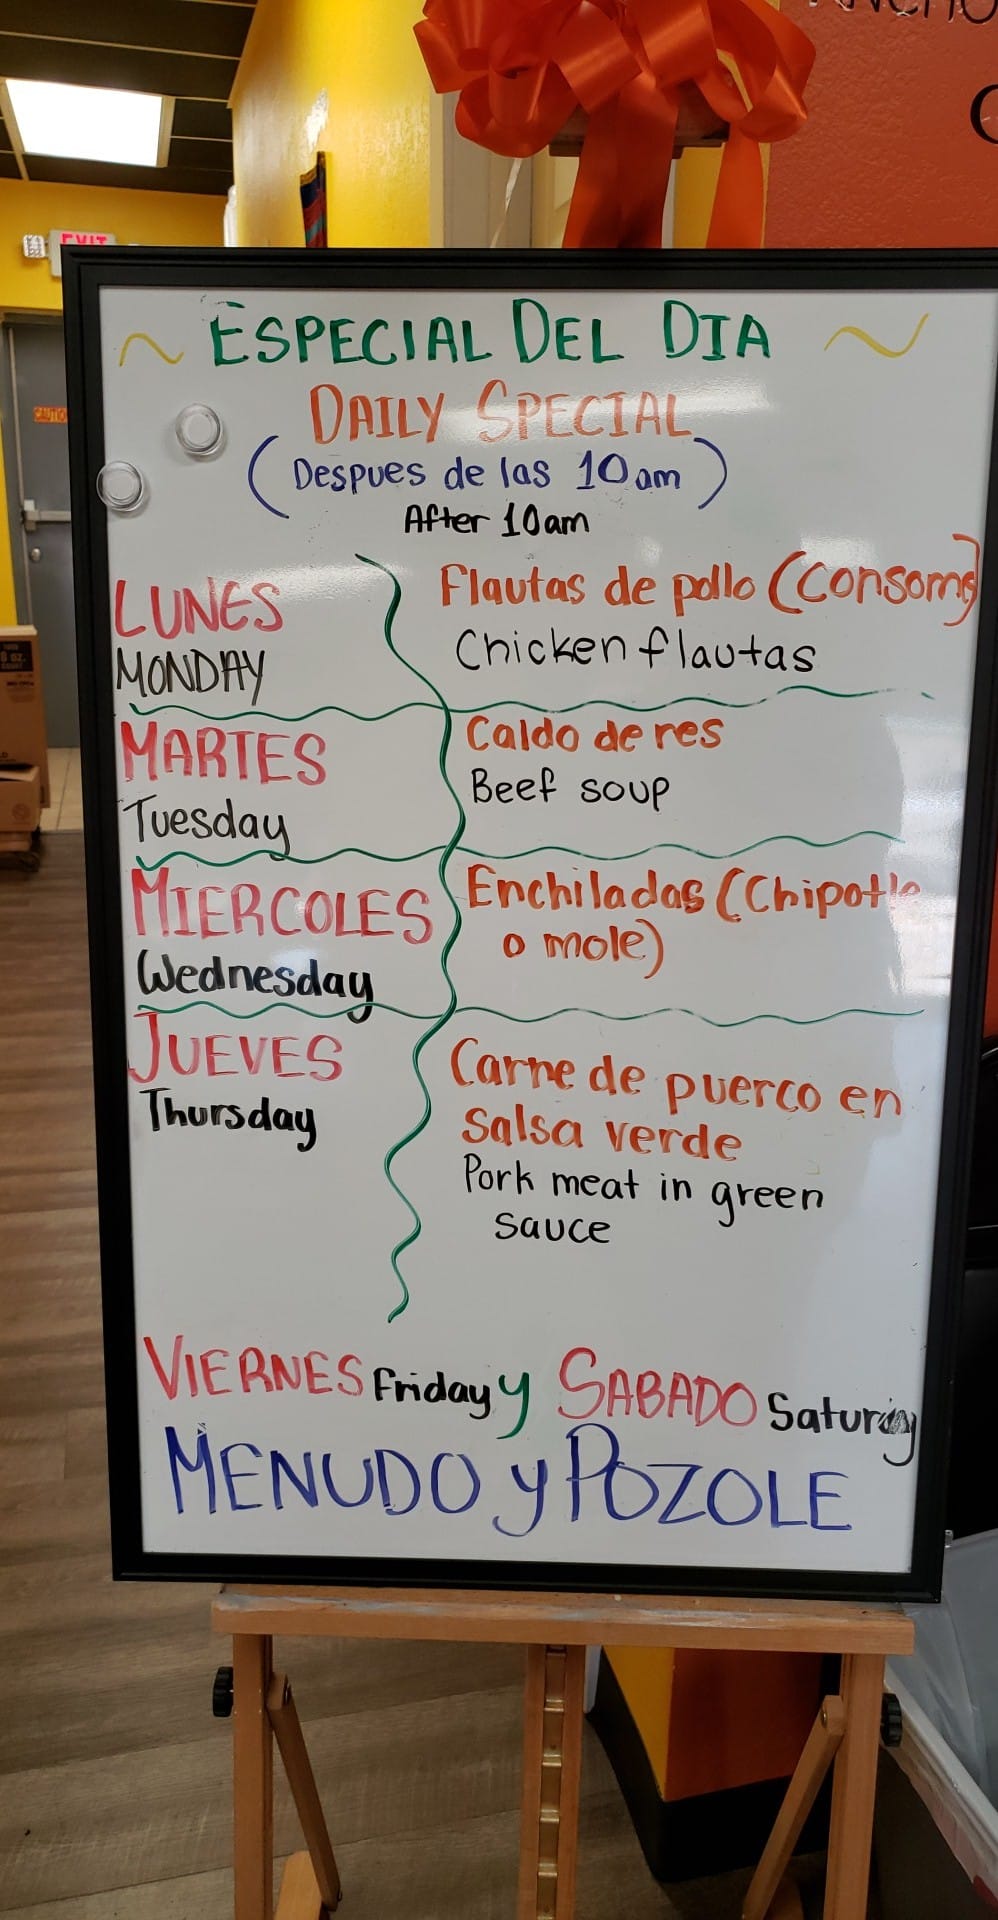 EXIT
CAUTION
ESPECIAL DEL DIA
DAILY SPECIAL
(Despues de las 10am)
After 10am
LUNES
MONDAY
Flautas de pollo (Consome)
Chicken flautas
MARTES
Tuesday
Caldo de res
Beef soup
MIERCOLES
Wednesday
Enchiladas (Chipotle
o mole)
JUEVES
Thursday
Carne de puerco en
salsa verde
Pork meat in green
sauce
VIERNES Friday y SABADO Saturday
MENUDO y POZOLE